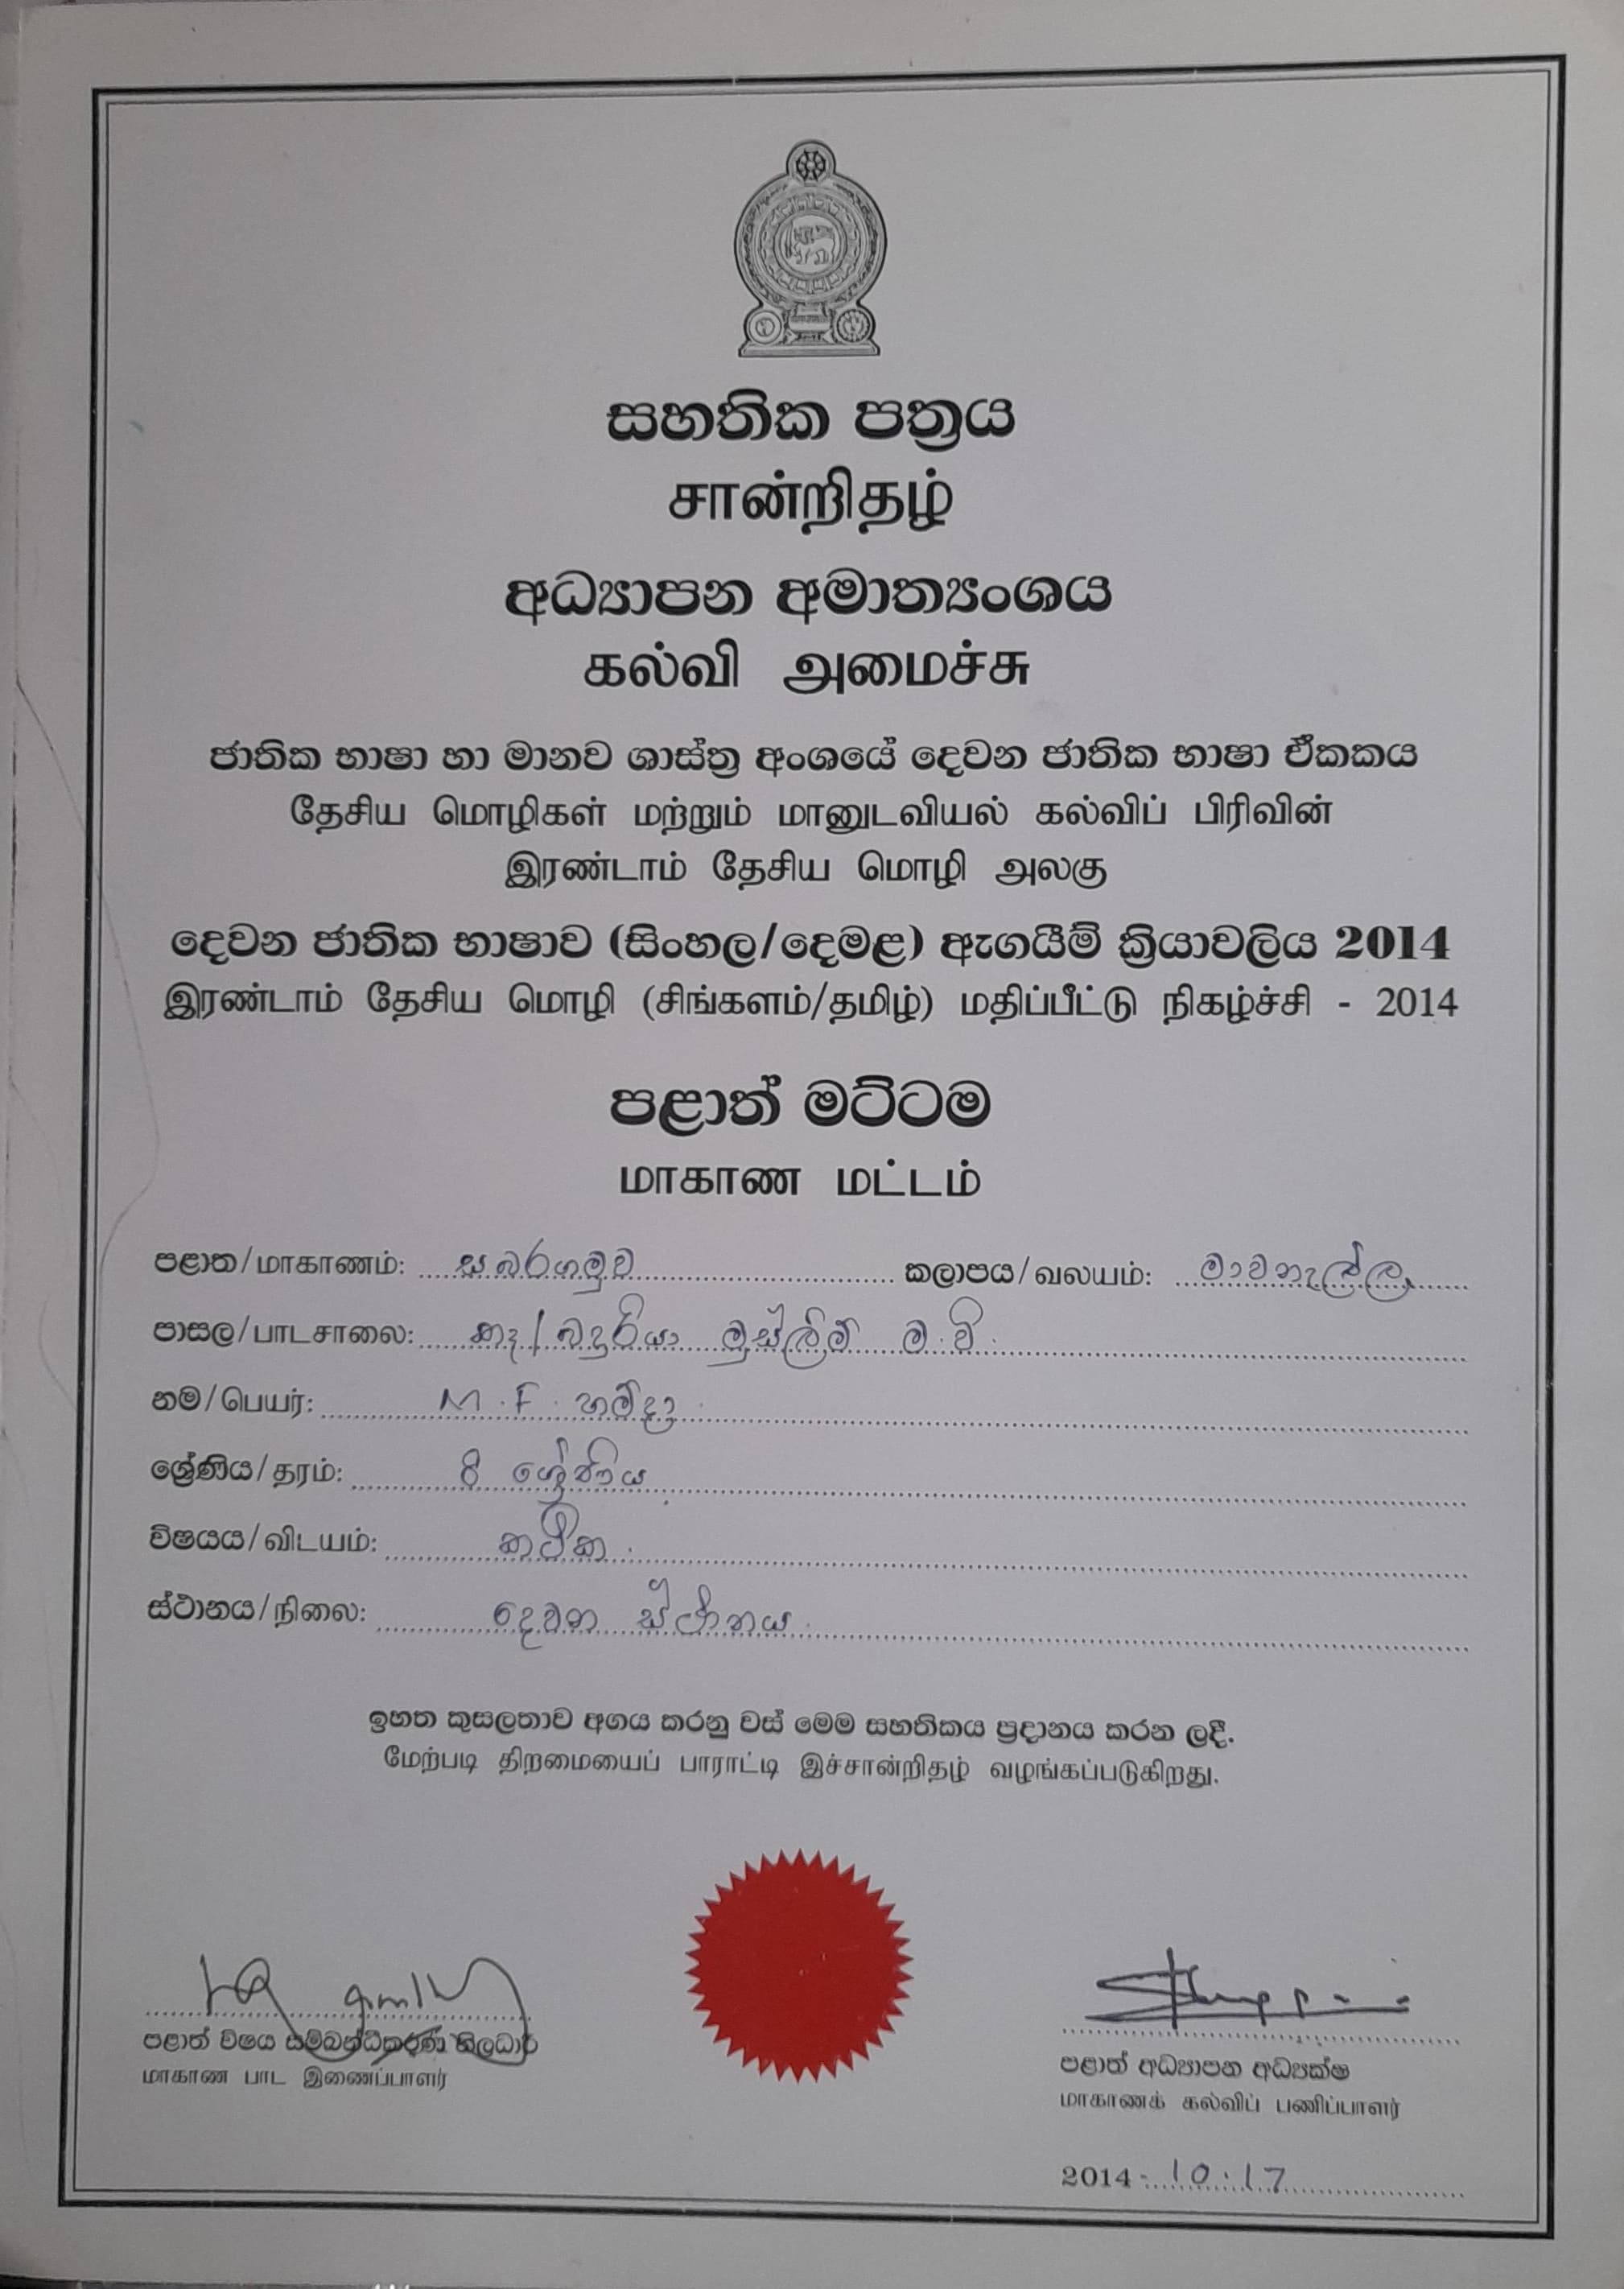 සහතික පත්‍රය
சான்றிதழ்
අධ්‍යාපන අමාත්‍යංශය
கல்வி அமைச்சு
ජාතික භාෂා හා මානව ශාස්ත්‍ර අංශයේ දෙවන ජාතික භාෂා ඒකකය
தேசிய மொழிகள் மற்றும் மானுடவியல் கல்விப் பிரிவின்
இரண்டாம் தேசிய மொழி அலகு
දෙවන ජාතික භාෂාව (සිංහල/දෙමළ) ඇගයීම් ක්‍රියාවලිය 2014
இரண்டாம் தேசிய மொழி (சிங்களம்/தமிழ்) மதிப்பீட்டு நிகழ்ச்சி - 2014
පළාත් මට්ටම
மாகாண மட்டம்
පළාත/மாகாணம்: සබරගමුව කලාපය/வலயம்: මාවනැල්ල
පාසල/பாடசாலை: කෑ/බදුරියා මුස්ලිම් ම.වි.
නම/பெயர்: M.F. හම්දා
ශ්‍රේණිය/தரம்: 8 ශ්‍රේණිය
විෂයය/விடயம்: කථික
ස්ථානය/நிலை: දෙවන ස්ථානය
ඉහත කුසලතාව අගය කරනු වස් මෙම සහතිකය ප්‍රදානය කරන ලදී.
மேற்படி திறமையைப் பாராட்டி இச்சான்றிதழ் வழங்கப்படுகிறது.
පළාත් විෂය සම්බන්ධීකරණ නිලධාරි
மாகாண பாட இணைப்பாளர்
පළාත් අධ්‍යාපන අධ්‍යක්ෂ
மாகாணக் கல்விப் பணிப்பாளர்
2014-10.17